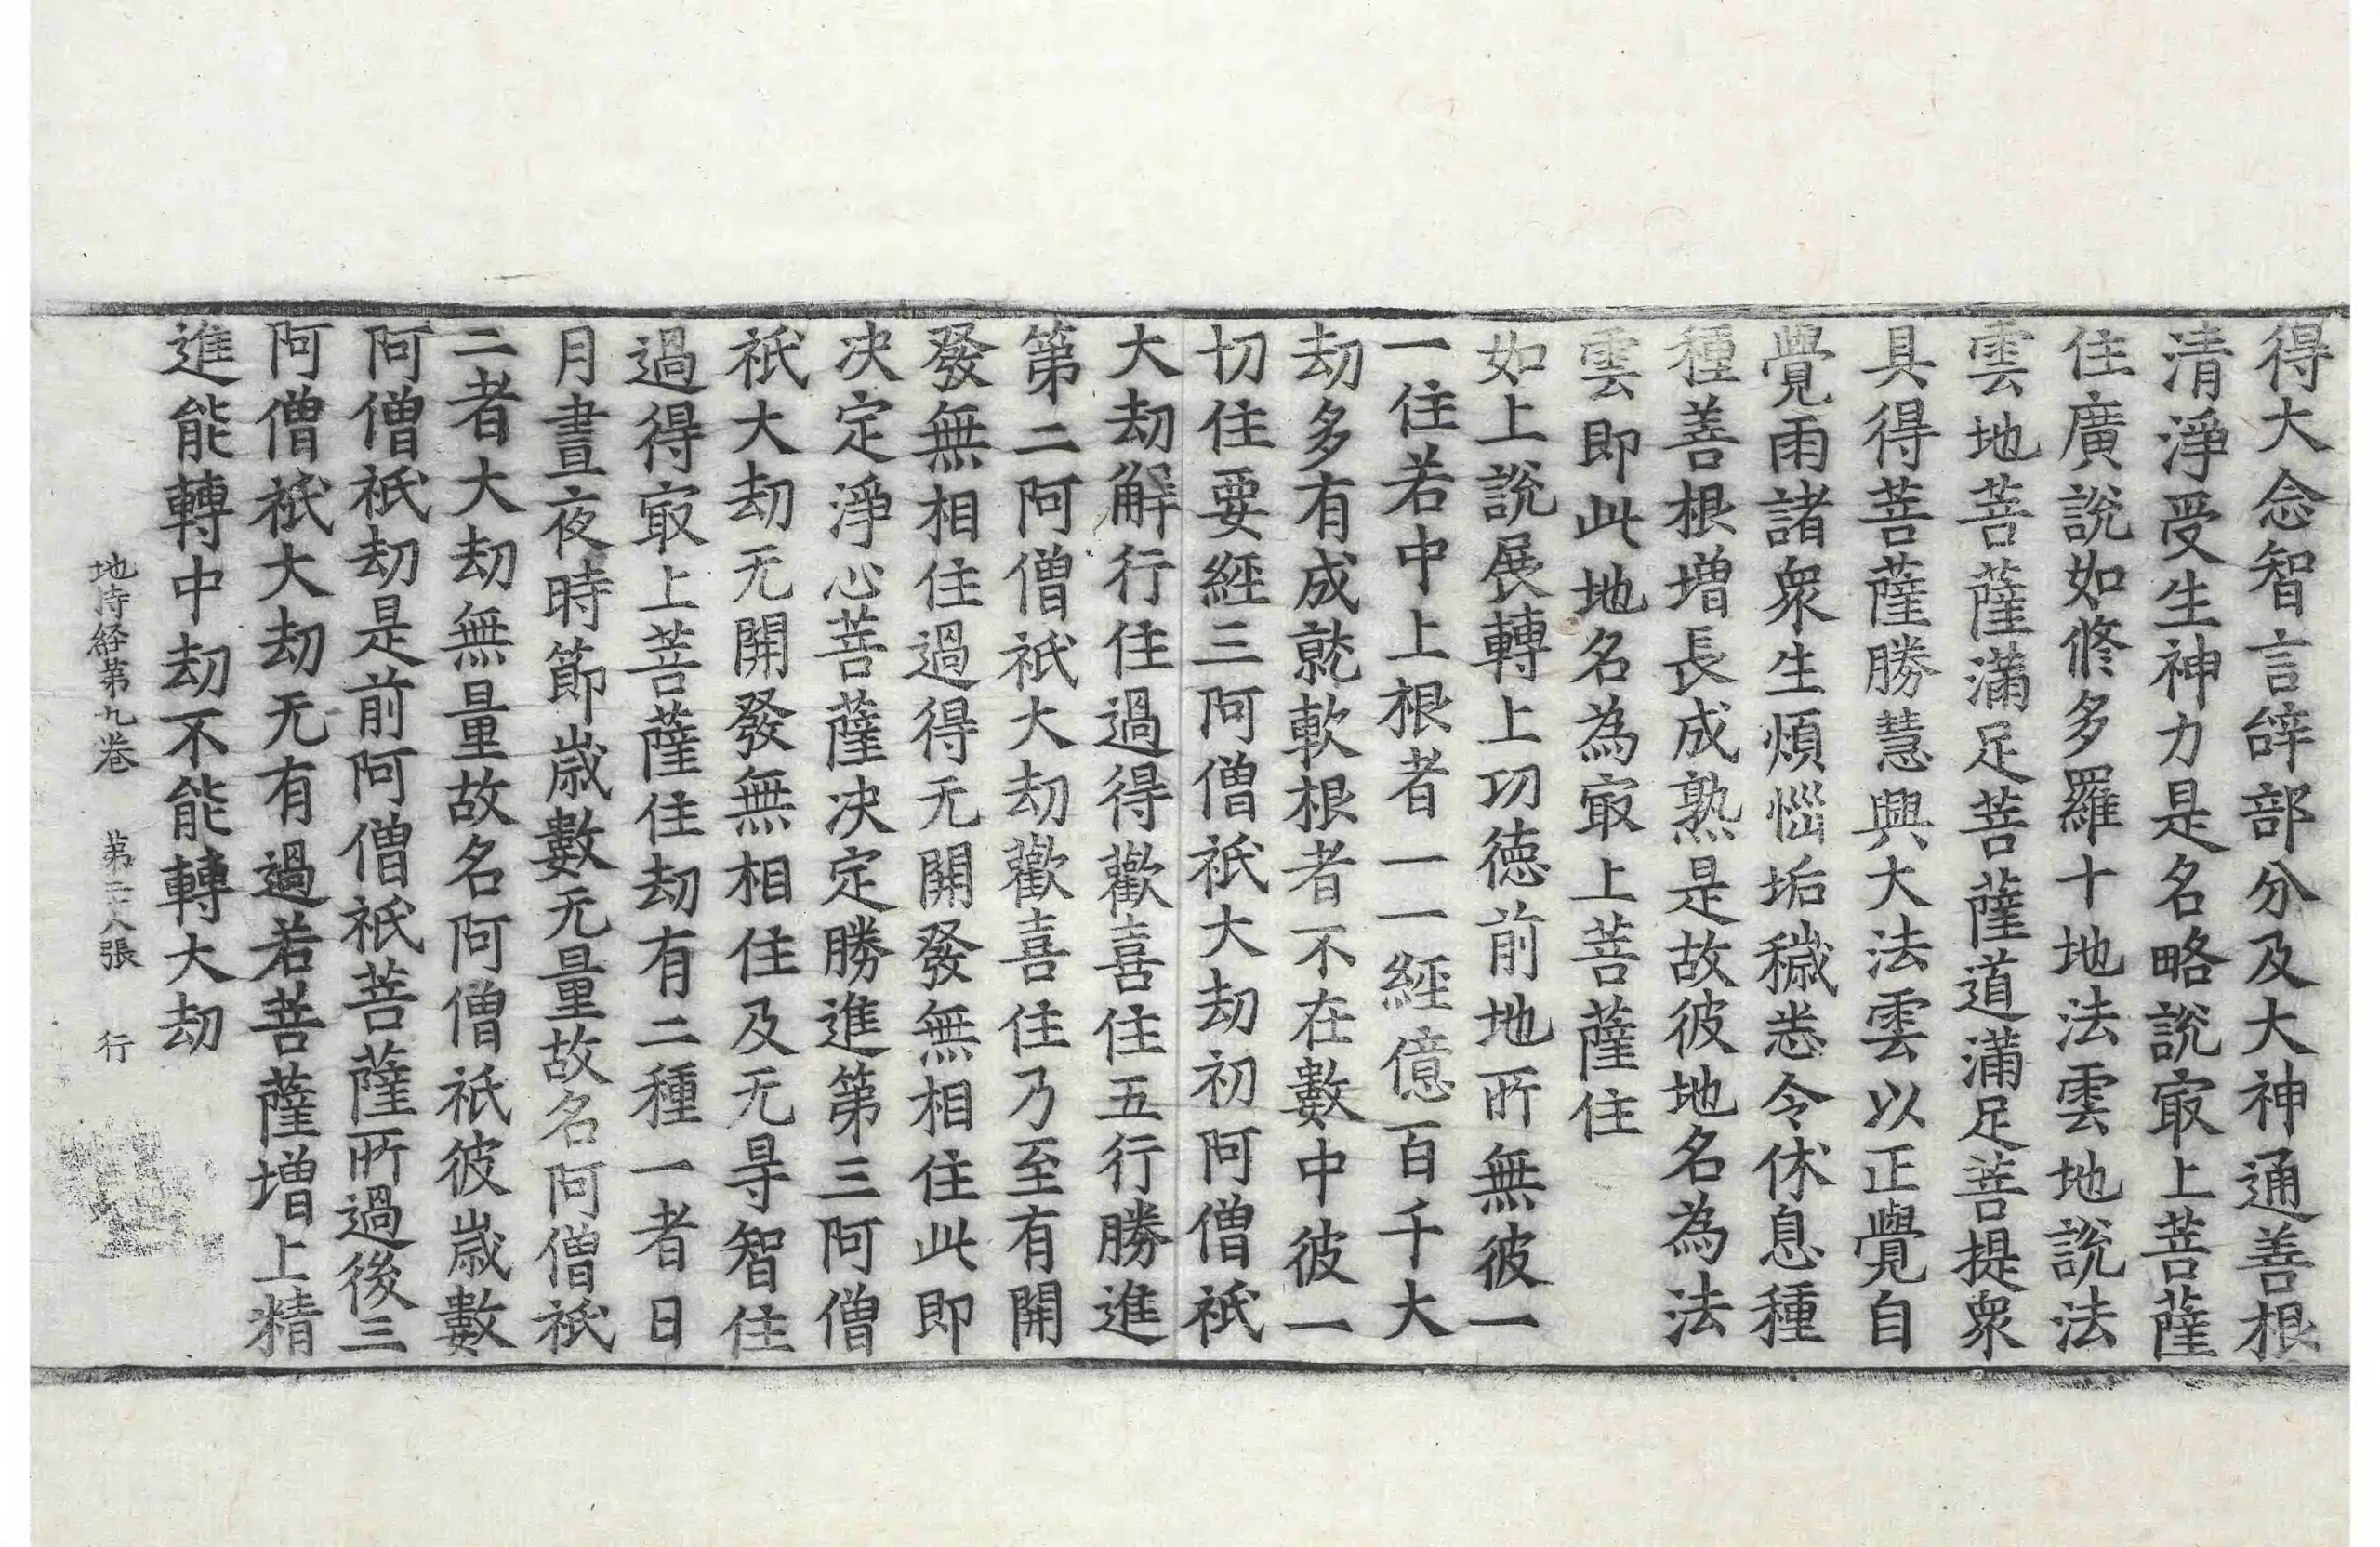 得大念智言辝部分及大神通善根
清淨受生神力是名略說㝡上菩薩
住廣說如修多羅十地法雲地說法
雲地菩薩滿足菩薩道滿足菩提衆
具得菩薩勝慧興大法雲以正覺自
覺雨諸衆生煩惱垢穢悉令休息種
種善根增長成熟是故彼地名為法
雲即此地名為㝡上菩薩住
如上說展轉上功德前地所無彼一
一住若中上根者一一經億百千大
劫多有成就軟根者不在數中彼一
切住要經三阿僧祇大劫初阿僧祇
大劫解行住過得歡喜住五行勝進
第二阿僧祇大劫歡喜住乃至有開
發無相住過得无開發無相住此即
决定淨心菩薩决定勝進第三阿僧
祇大劫无開發無相住及无㝵智住
過得㝡上菩薩住劫有二種一者日
月晝夜時節歲數无量故名阿僧祇
二者大劫無量故名阿僧祇彼歲數
阿僧祇劫是前阿僧祇菩薩所過後三
阿僧祇大劫无有過若菩薩增上精
進能轉中劫不能轉大劫
地持経第九卷 第張 行